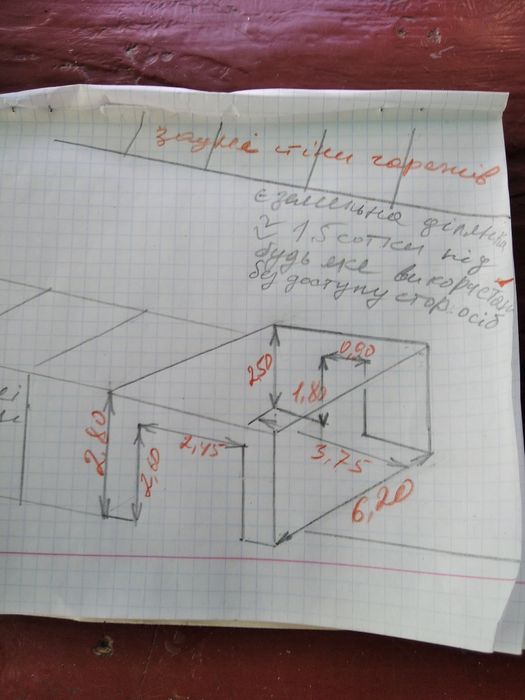 задні стіни гаражів
є земельна ділянка
≈ 1,5 сотки під
будь яке використан
без доступу стор. осіб
0,90
2,50
1,80
2,80
2,45
3,75
6,20